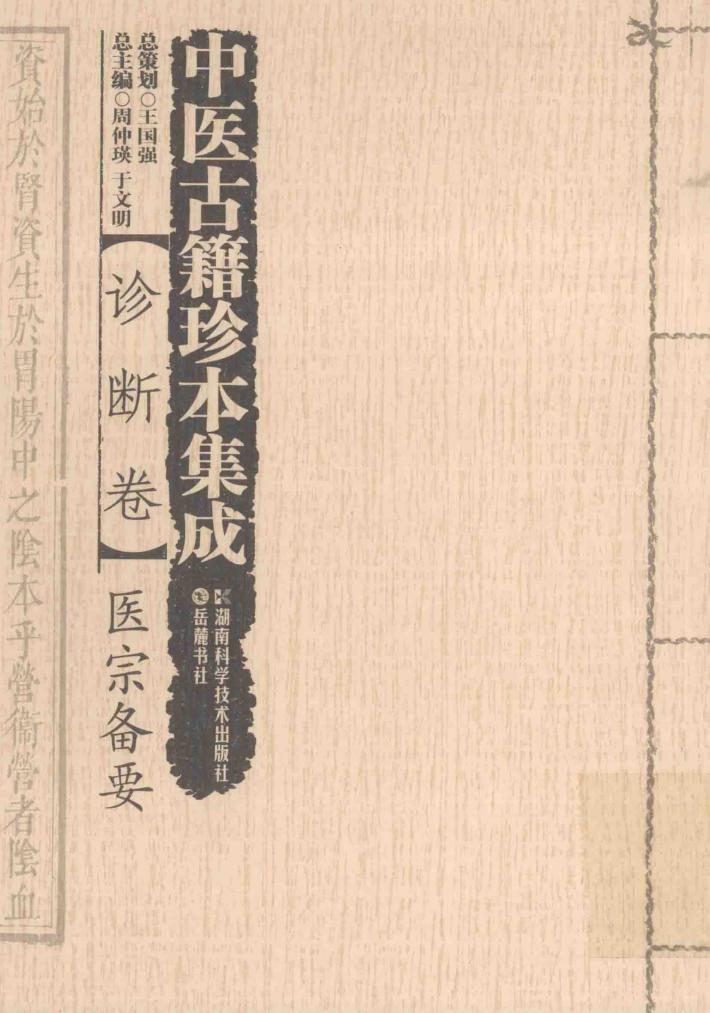 中医古籍珍本集成
湖南科学技术出版社
岳麓书社
总策划○王国强
总主编○周仲瑛 于文明
【诊断卷】
医宗备要
資始於腎資生於胃陽中之陰本乎營衞營者陰血